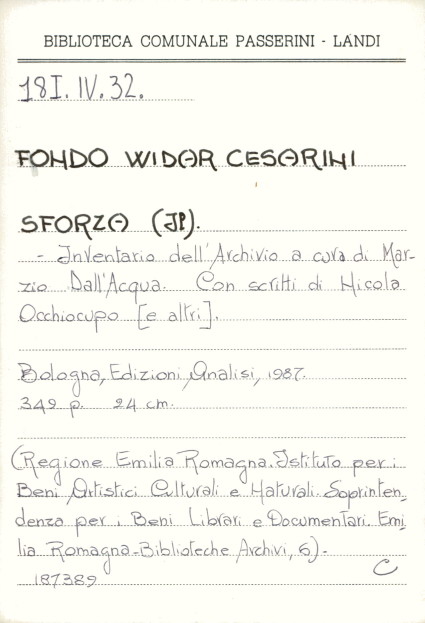 BIBLIOTECA COMUNALE PASSERINI - LANDI
18I. IV. 32.
FONDO WIDAR CESARINI
SFORZA (Il).
- Inventario dell'Archivio a cura di Mar-
zio Dall'Acqua. Con scritti di Nicola
Occhiocupo [e altri].
Bologna, Edizioni Analisi, 1987.
349 p. 24 cm.
(Regione Emilia Romagna. Istituto per i
Beni Artistici Culturali e Naturali. Soprinten-
denza per i Beni Librari e Documentari. Emi
lia Romagna-Biblioteche Archivi, 6).
187389 C